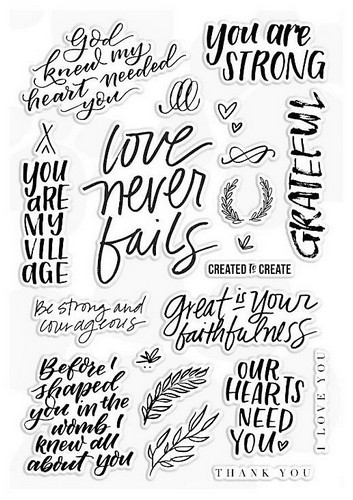 God
knew my
heart needed
you
you are
STRONG
GRATEFUL
YOU
aRE
MY
VILL
AGE
love
never
fails
CREATED to CREATE
Be strong and
courageous
great is your
faithfulness
Before I
shaped
you in the
womb I
knew all
about you
OUR
HEARTS
NEED
YOU
I LOVE YOU
THANK YOU